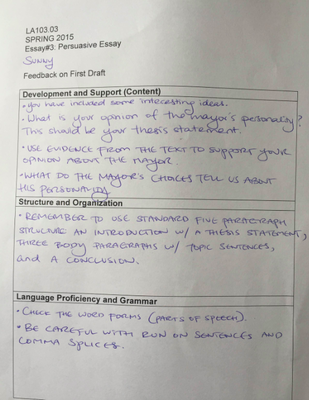 LA103.03
SPRING 2015
Essay#3: Persuasive Essay
Sunny
Feedback on First Draft
Development and Support (Content)
• you have included some interesting ideas.
• What is your opinion of the mayor's personality?
This should be your thesis statement.
• USE EVIDENCE FROM THE TEXT TO SUPPORT YOUR
OPINION ABOUT THE MAYOR
• WHAT DO THE MAYOR'S CHOICES TELL US ABOUT
HIS PERSONALITY
Structure and Organization
• REMEMBER TO USE STANDARD FIVE PARAGRAPH
STRUCTURE AN INTRODUCTION W/ A THESIS STATEMENT,
THREE BODY PARAGRAPHS W/ TOPIC SENTENCES,
and A CONCLUSION.
Language Proficiency and Grammar
• CHECK THE WORD FORMS (PARTS OF SPEECH).
• BE CAREFUL WITH RUN ON SENTENCES AND
COMMA SPLICES.